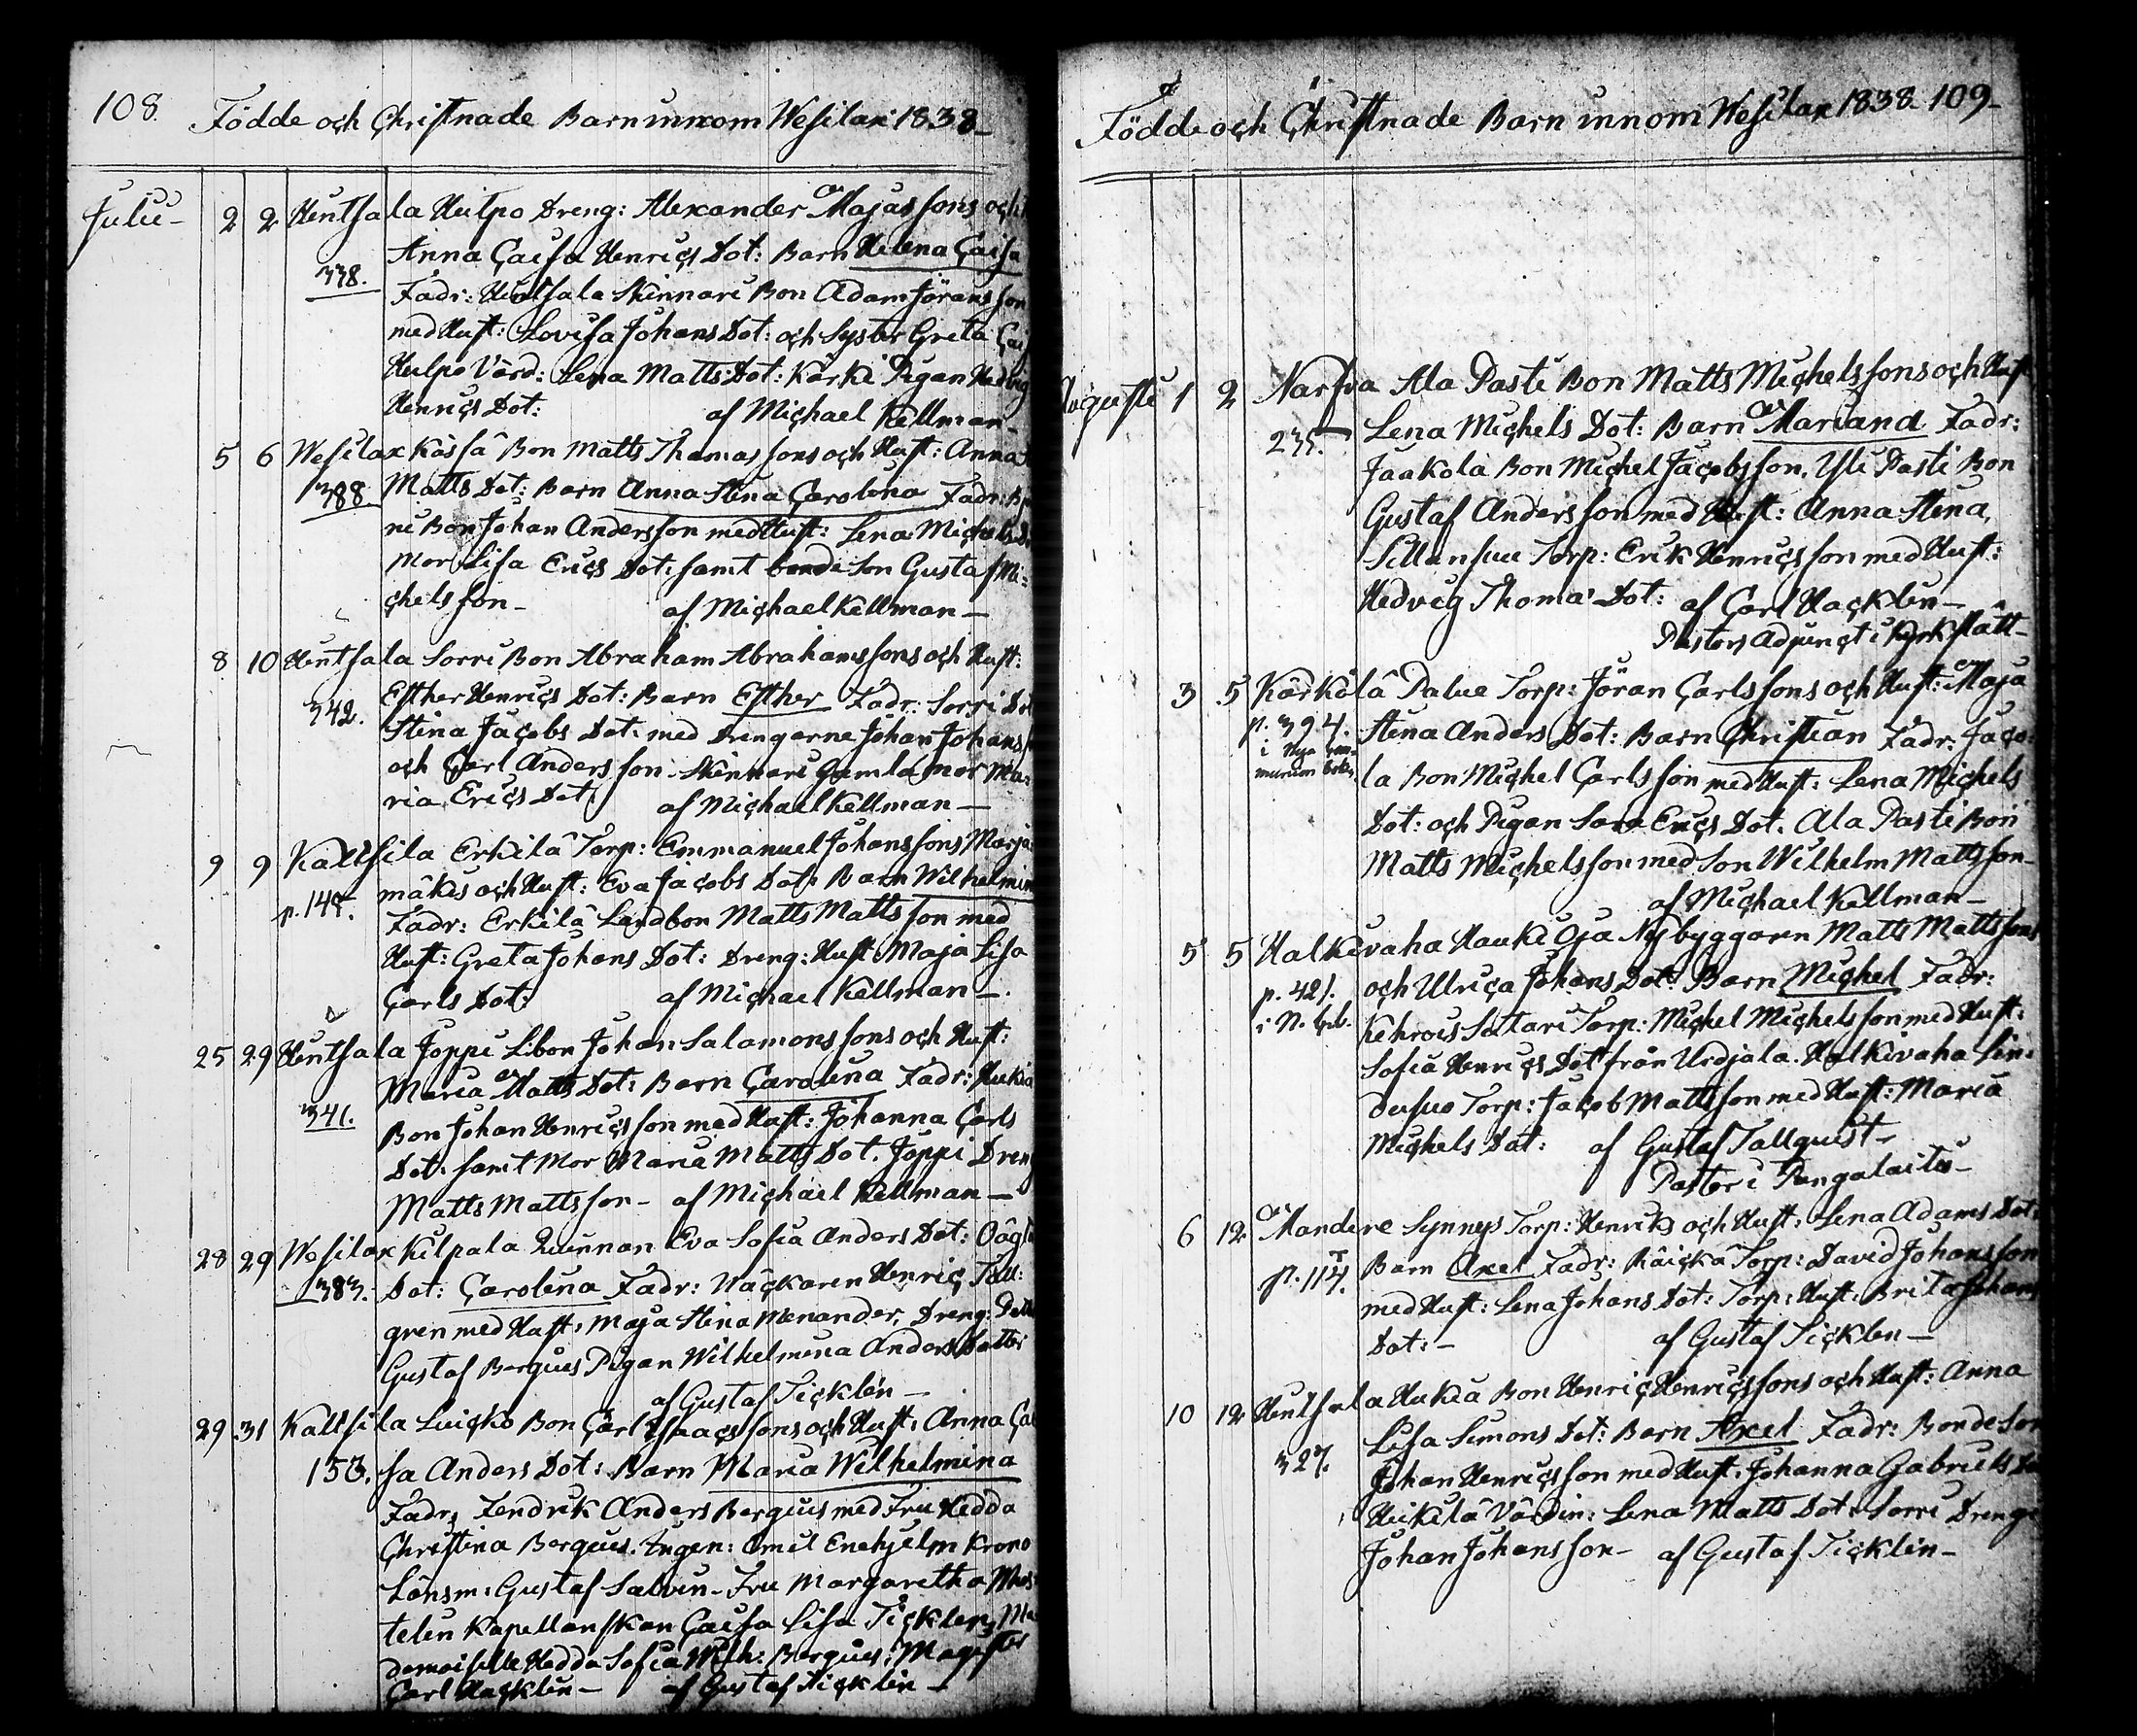 108. Födde och Christnade Barn innom Wesilax 1838
Julii 2 2 Hentsala Huitpo Dreng: Alexander Majassons och
Anna Caisa Henrics Dot: Barn Helena Caisa
338. Fadr: Hentsala Skinnari Bon Adam Jöransson
med Hust: Lovisa Johans Dot: och Syster Greta
Huitpo Värd: Lena Matts Dot: Karki Pigan Hedvig
Henrics Dot: af Michael Kellman
5 6 Wesilax Kässä Bon Matts Thomassons och Hust: Anna
388. Matts Dot: Barn Anna Stina Carolina Fadr:
ni Bon Johan Andersson med Hust: Lena Michels
Mor Lisa Erics Dot: samt bonde Son Gustaf Mi-
chelsson af Michael Kellman
8 10 Hentsala Sorri Bon Abraham Abrahamssons och Hust:
342. Esther Henrics Dot: Barn Esther Fadr: Sorri
Stina Jacobs Dot: med Drengarne Johan Johans
och Carl Andersson Skinnari Gamla Mor Ma-
ria Erics Dot af Michael Kellman
9 9 Kaltsila Erkilä Torp: Emmanuel Johanssons Marja-
p. 148. mäkis och Hust: Eva Jacobs Dot: Barn Wilhelmina
Fadr: Erkilä Landbon Matts Mattsson med
Hust: Greta Johans Dot: Dreng: Hust: Maja Lisa
Carls Dot: af Michael Kellman
25 29 Hentsala Joppi Libon Johan Salamonssons och Hust:
Maria Matts Dot: Barn Carolina Fadr: Hukia
341. Bon Johan Henricsson med Hust: Johanna Carls
Dot: samt Mor Maria Matts Dot. Joppi Dreng
Matts Mattsson af Michael Kellman
28 29 Wesilax Kilpala Quinnan Eva Sofia Anders Dot: Oägta
383. Dot: Carolina Fadr: Henric Täll-
gren med Hust: Maja Stina Menander, Dreng:
Gustaf Bergius Pigan Wilhelmina Anders Dotter
af Gustaf Ticklén
29 31 Kaltsila Luicko Bon Carl Isaacssons och Hust: Anna Cai
153. sa Anders Dot: Barn Maria Wilhelmina
Fadr: Fendrik Anders Bergius med Fru Hedda
Christina Bergius. Ingen: Emil Enehjelm Krono
Länsm: Gustaf Salvin Fru Margaretha
telin Kapellanskan Caisa Lisa Ticklen, Ma
demoiselle Hedda Sofia Wilh: Bergius, Magister
Carl Hacklin af Gustaf Ticklén
Födde och Christnade Barn innom Wesilax 1838. 109
Augusti 1 2 Narfva Ala Pasti Bon Matts Michelssons och Hust
235. Lena Michels Dot: Barn Mariand Fadr:
Jaakola Bon Michel Jacobsson. Yli Pasti Bon
Gustaf Andersson med Hust: Anna Stina,
Sillansuu Torp: Erik Henricsson med Hust:
Hedvig Thomas Dot: af Carl Hacklin
Pastors Adjunct i Kyrkslätt
3 5 Kärkölä Palue Torp: Jöran Carlssons och Hust: Maja
p. 394. Stina Anders Dot: Barn Christian Fadr: Jaco-
i Nya kom-
munion bok. la Bon Michel Carlsson med Hust: Lena Michels
Dot: och Pigan Sara Erics Dot. Ala Pasti Bon
Matts Michelsson med Son Wilhelm Mattsson
af Michael Kellman
5 5 Halkivaha Hauki Oja Nybyggarn Matts Mattssons
p. 421. och Ulrica Johans Dot: Barn Michel Fadr:
i N. b. Kehrois Satari Torp: Michel Michelsson med Hust:
Sofia Henrics Dot från Urdjala. Halkivaha Sin-
Torp: Jacob Mattsson med Hust: Maria
Michels Dot: af Gustaf Tallquist
Pastor i Pungalaitis
6 12 Mandere Synnys Torp: Henriks och Hust: Lena Adams Dot:
p. 114. Barn Axel Fadr: Räickä Torp: David Johansson
med Hust: Lena Johans Dot: Torp: Hust: Brita Johans
Dot: af Gustaf Ticklen
10 12 Hentsala Hukia Bon Henric Henricssons och Hust: Anna
327. Lisa Simons Dot: Barn Axel Fadr: Bonde Son
Johan Henricsson med Hust: Johanna Gabriels
Heikilä Värdin: Lena Matts Dot: Sorri Dreng:
Johan Johansson af Gustaf Ticklén